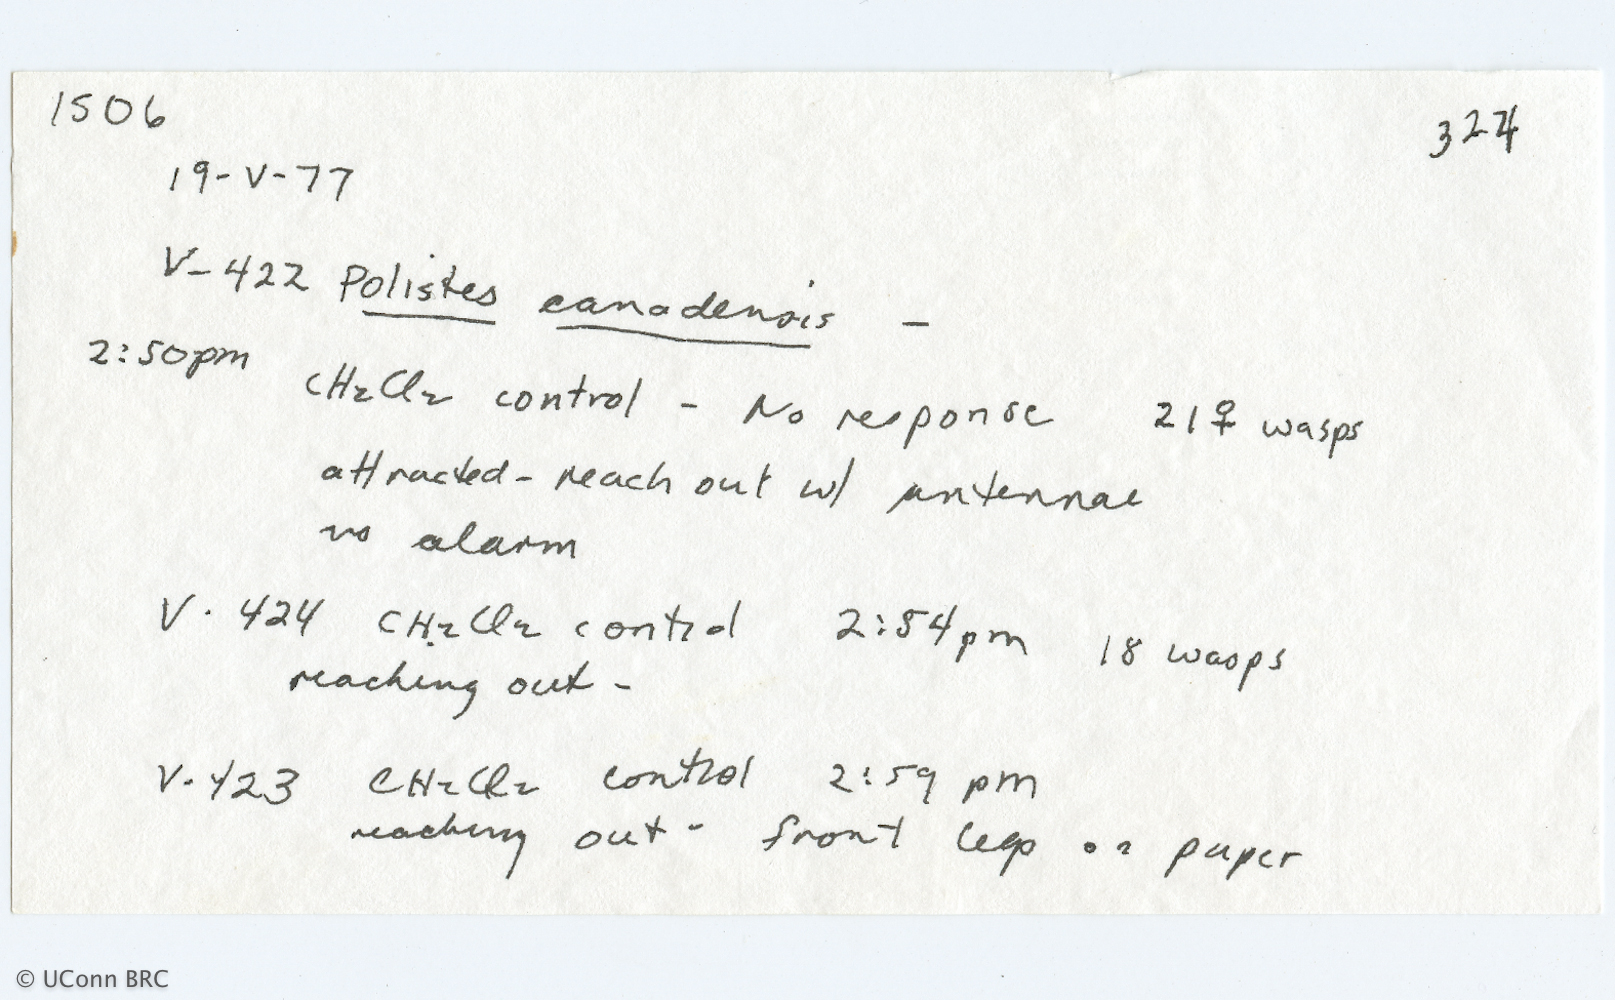 1506
324
19-V-77
V-422 Polistes canadensis -
2:50pm
CH2Cl2 control - No response 21♀ wasps
attracted - reach out w/ antennae
no alarm
V-424 CH2Cl2 control 2:54pm 18 wasps
reaching out -
V-423 CH2Cl2 control 2:59 pm
reaching out - front legs on paper
© UConn BRC